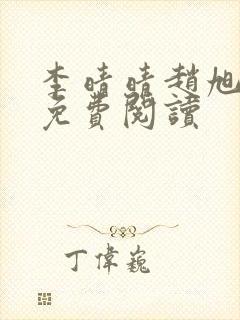 李晴晴趙旭
免費閱讀
丁偉巍